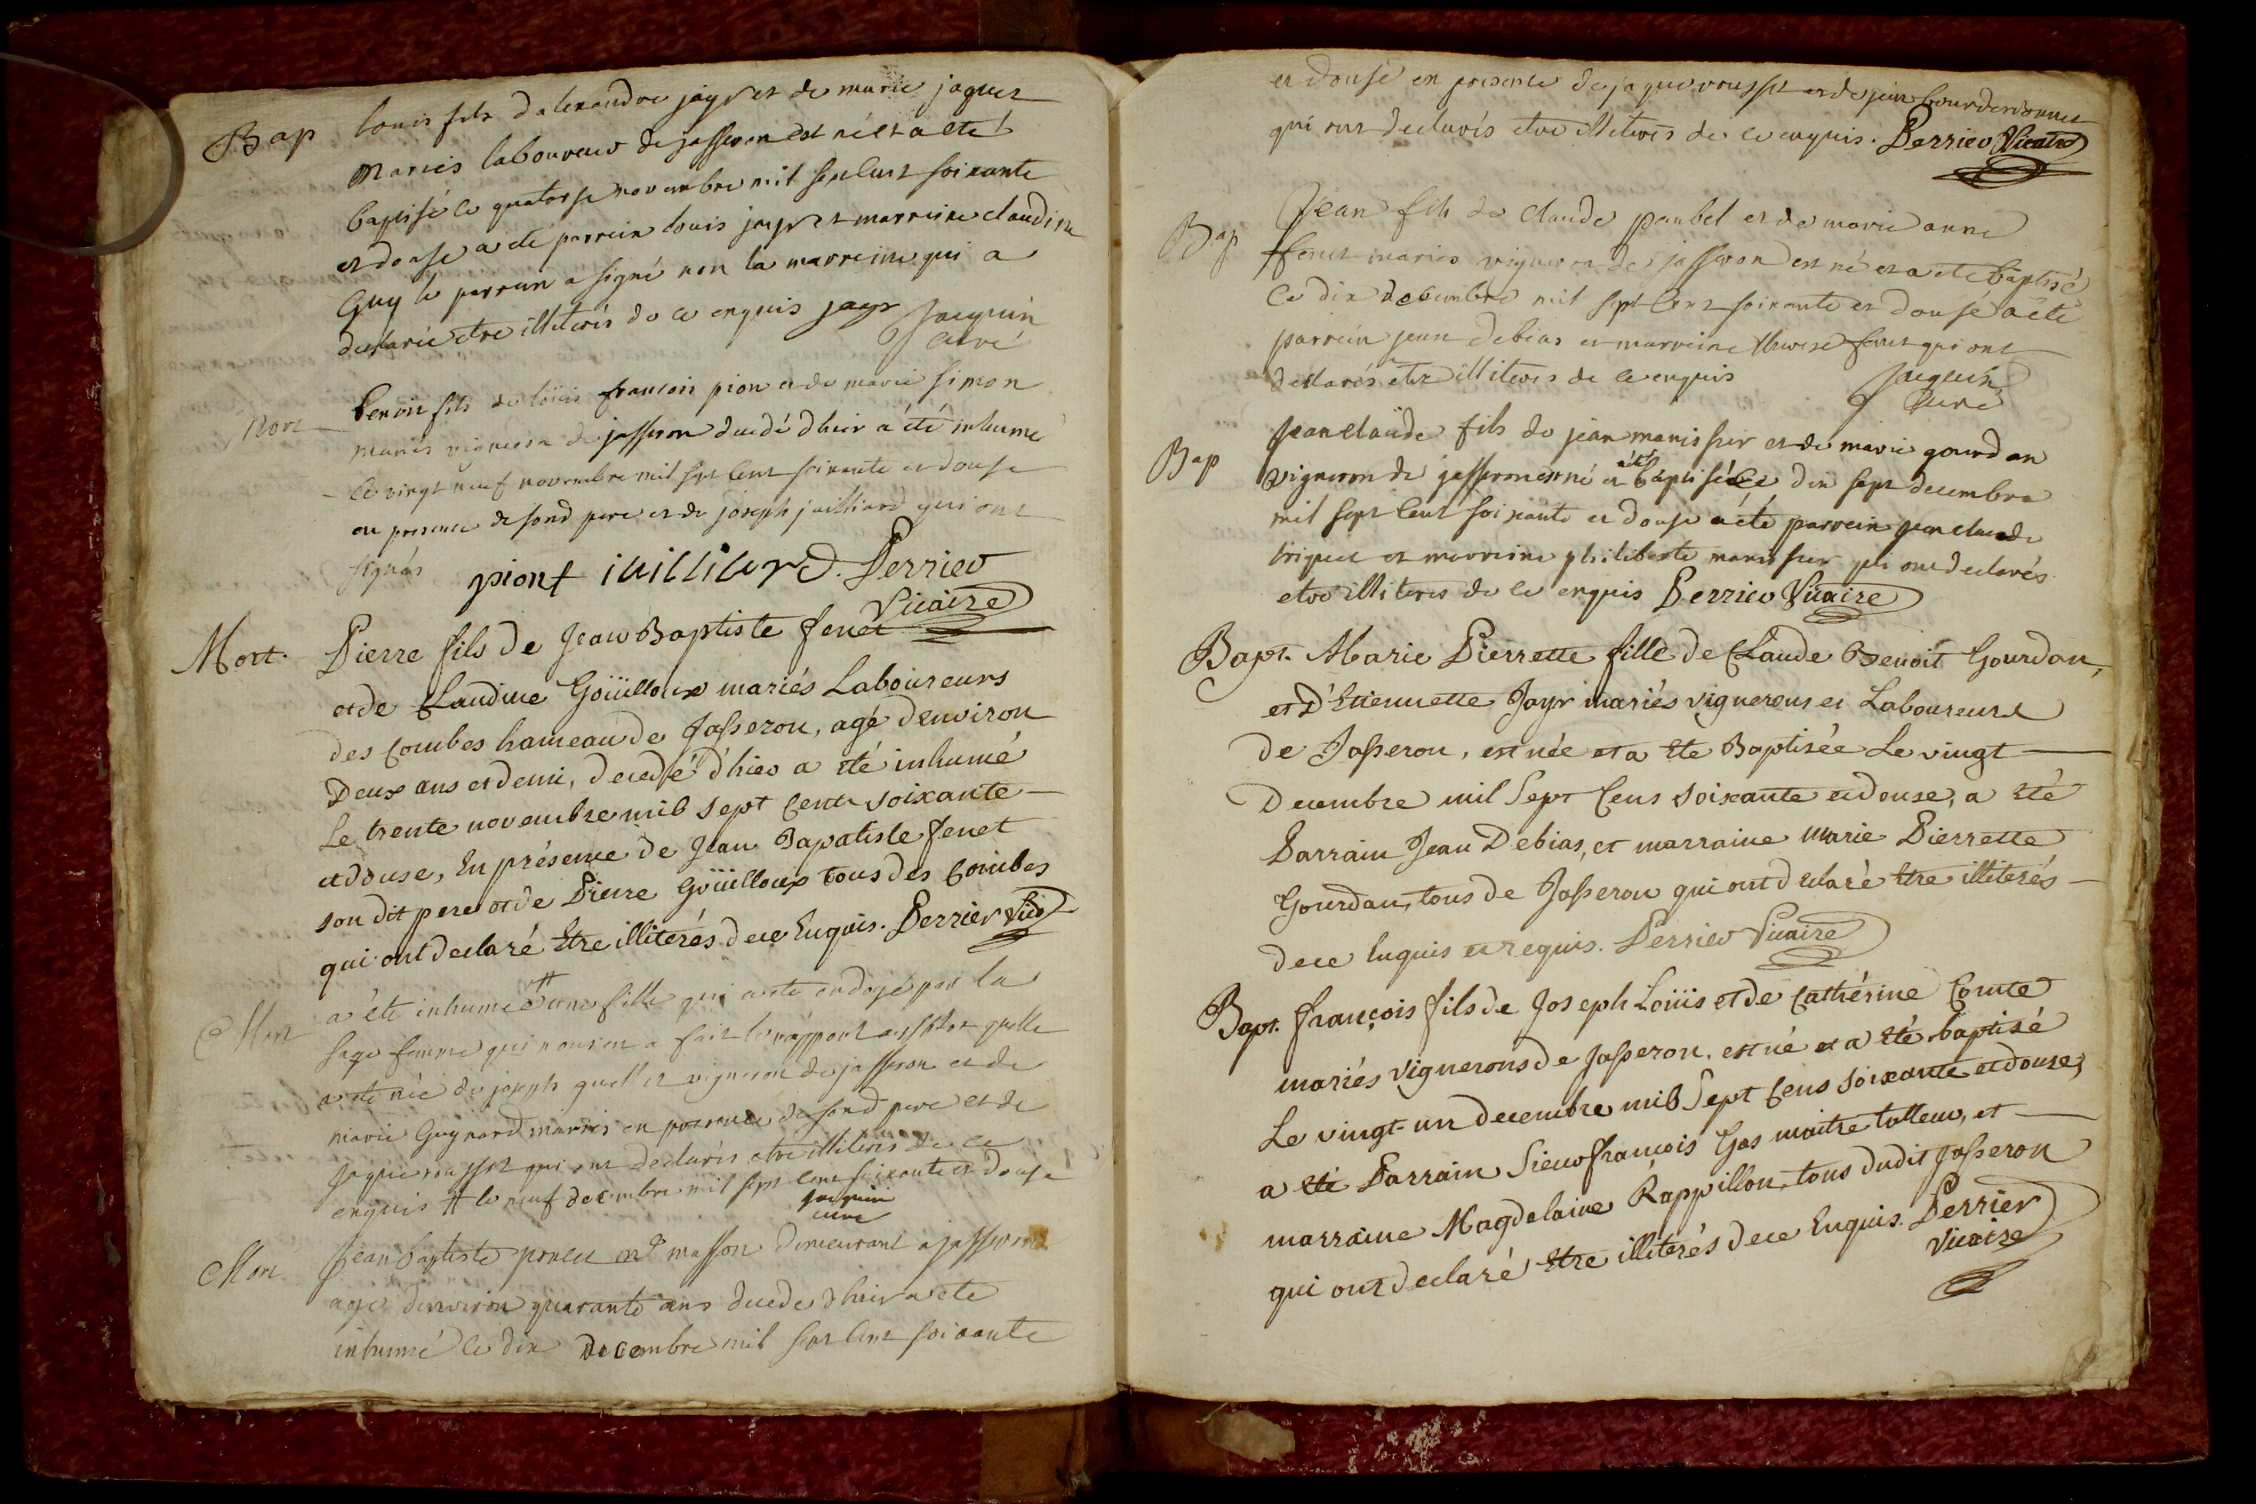 Bap louis fils dalexandre jayr et de marie jaquet
mariés laboureur de jasseron est né et a eté
baptisé le quatorse novembre mil sept cent soixante
et douse a eté parrein louis jayr et marreine claudine
Guy le parrein a signé non la marreine qui a
declarée etre illiterés de ce enquis jayr Jacquin
curé
Mort benoit fils de loüis francois pion et de marie simon
mariés vigneron de jasseron decedé dhier a été inhumé
le vingt neuf novembre mil sept cent soixante et douse
en presence de sond pere et de joseph juilliard qui ont
signés piont iuilliard. Perrier
Vicaire
Mort. Pierre fils de Jean Baptiste fenet
et de Claudine Goüilloux mariés Laboureurs
des Combes hameau de Jasseron, agé d'environ
Deux ans et demi, decedé d'hier a été inhumé
Le trente novembre mil sept Cent soixante
et douse, En présence de Jean Bapatiste fenet
son dit pere et de Pierre Goüilloux tous des Combes
qui ont declaré Etre illiterés de ce Enquis. Perrier Vic
Mort a été inhumé # une fille qui a eté ondoyé par la
sage femme qui nous en a fait le rapport aussitot quelle
a eté née de joseph vigneron de jasseron et de
marie Guynard mariés en presence de sond pere et de
jaque rousset qui ont declarés etre illiterés de ce
enquis # le neuf decembre mil sept cent soixante et douse
jacquin
curé
Mort Jean baptiste poncet me masson demeurant a jasseron
agé denviron quarante ans decedé dhier a eté
inhumé le dix decembre mil sept cent soixante
et douse en presence de jaque rousset et de jean
qui ont declarés etre illiterés de ce enquis. Perrier Vicaire
Bap Jean fils de claude paubel et de marie anne
fenet mariés vigneron de jasseron est né et a eté baptisé
le dix decembre mil sept cent soixante et douse a été
parrein jean debias et marreine therese fenet qui ont
declarés etre illiterés de ce enquis Jacquin
curé
Bap Jean claude fils de jean manissier et de marie gourdan
vigneron de jasseron est né et a été baptisé le dix sept decembre
mil sept cent soixante et douse a été parrein jean claude
briquet et marreine philiberte manissier qui ont declarés
etre illiterés de ce enquis Perrier Vicaire
Bapt. Marie Pierrette fille de Claude Benoit Gourdan,
et D'Etiennette Jayr mariés vignerons et Laboureurs
de Jasseron, est née et a Eté Baptisée Le vingt
Decembre mil Sept Cens soixante et douse, a Eté
Parrain Jean Debias, et marraine marie Pierrette
Gourdan, tous de Jasseron qui ont declaré Etre illiterés
de ce Enquis et requis. Perrier Vicaire
Bapt. françois fils de Joseph Loüis et de Cathérine Comte
mariés vignerons de Jasseron, est né et a Eté baptisé
Le vingt-un decembre mil Sept Cens soixante et douse,
a Eté Parrain Sieur francois Gos maitre tailleur, et
marraine Magdelaine Rappillon, tous dudit Jasseron
qui ont declaré Etre illiterés de ce Enquis. Perrier
Vicaire